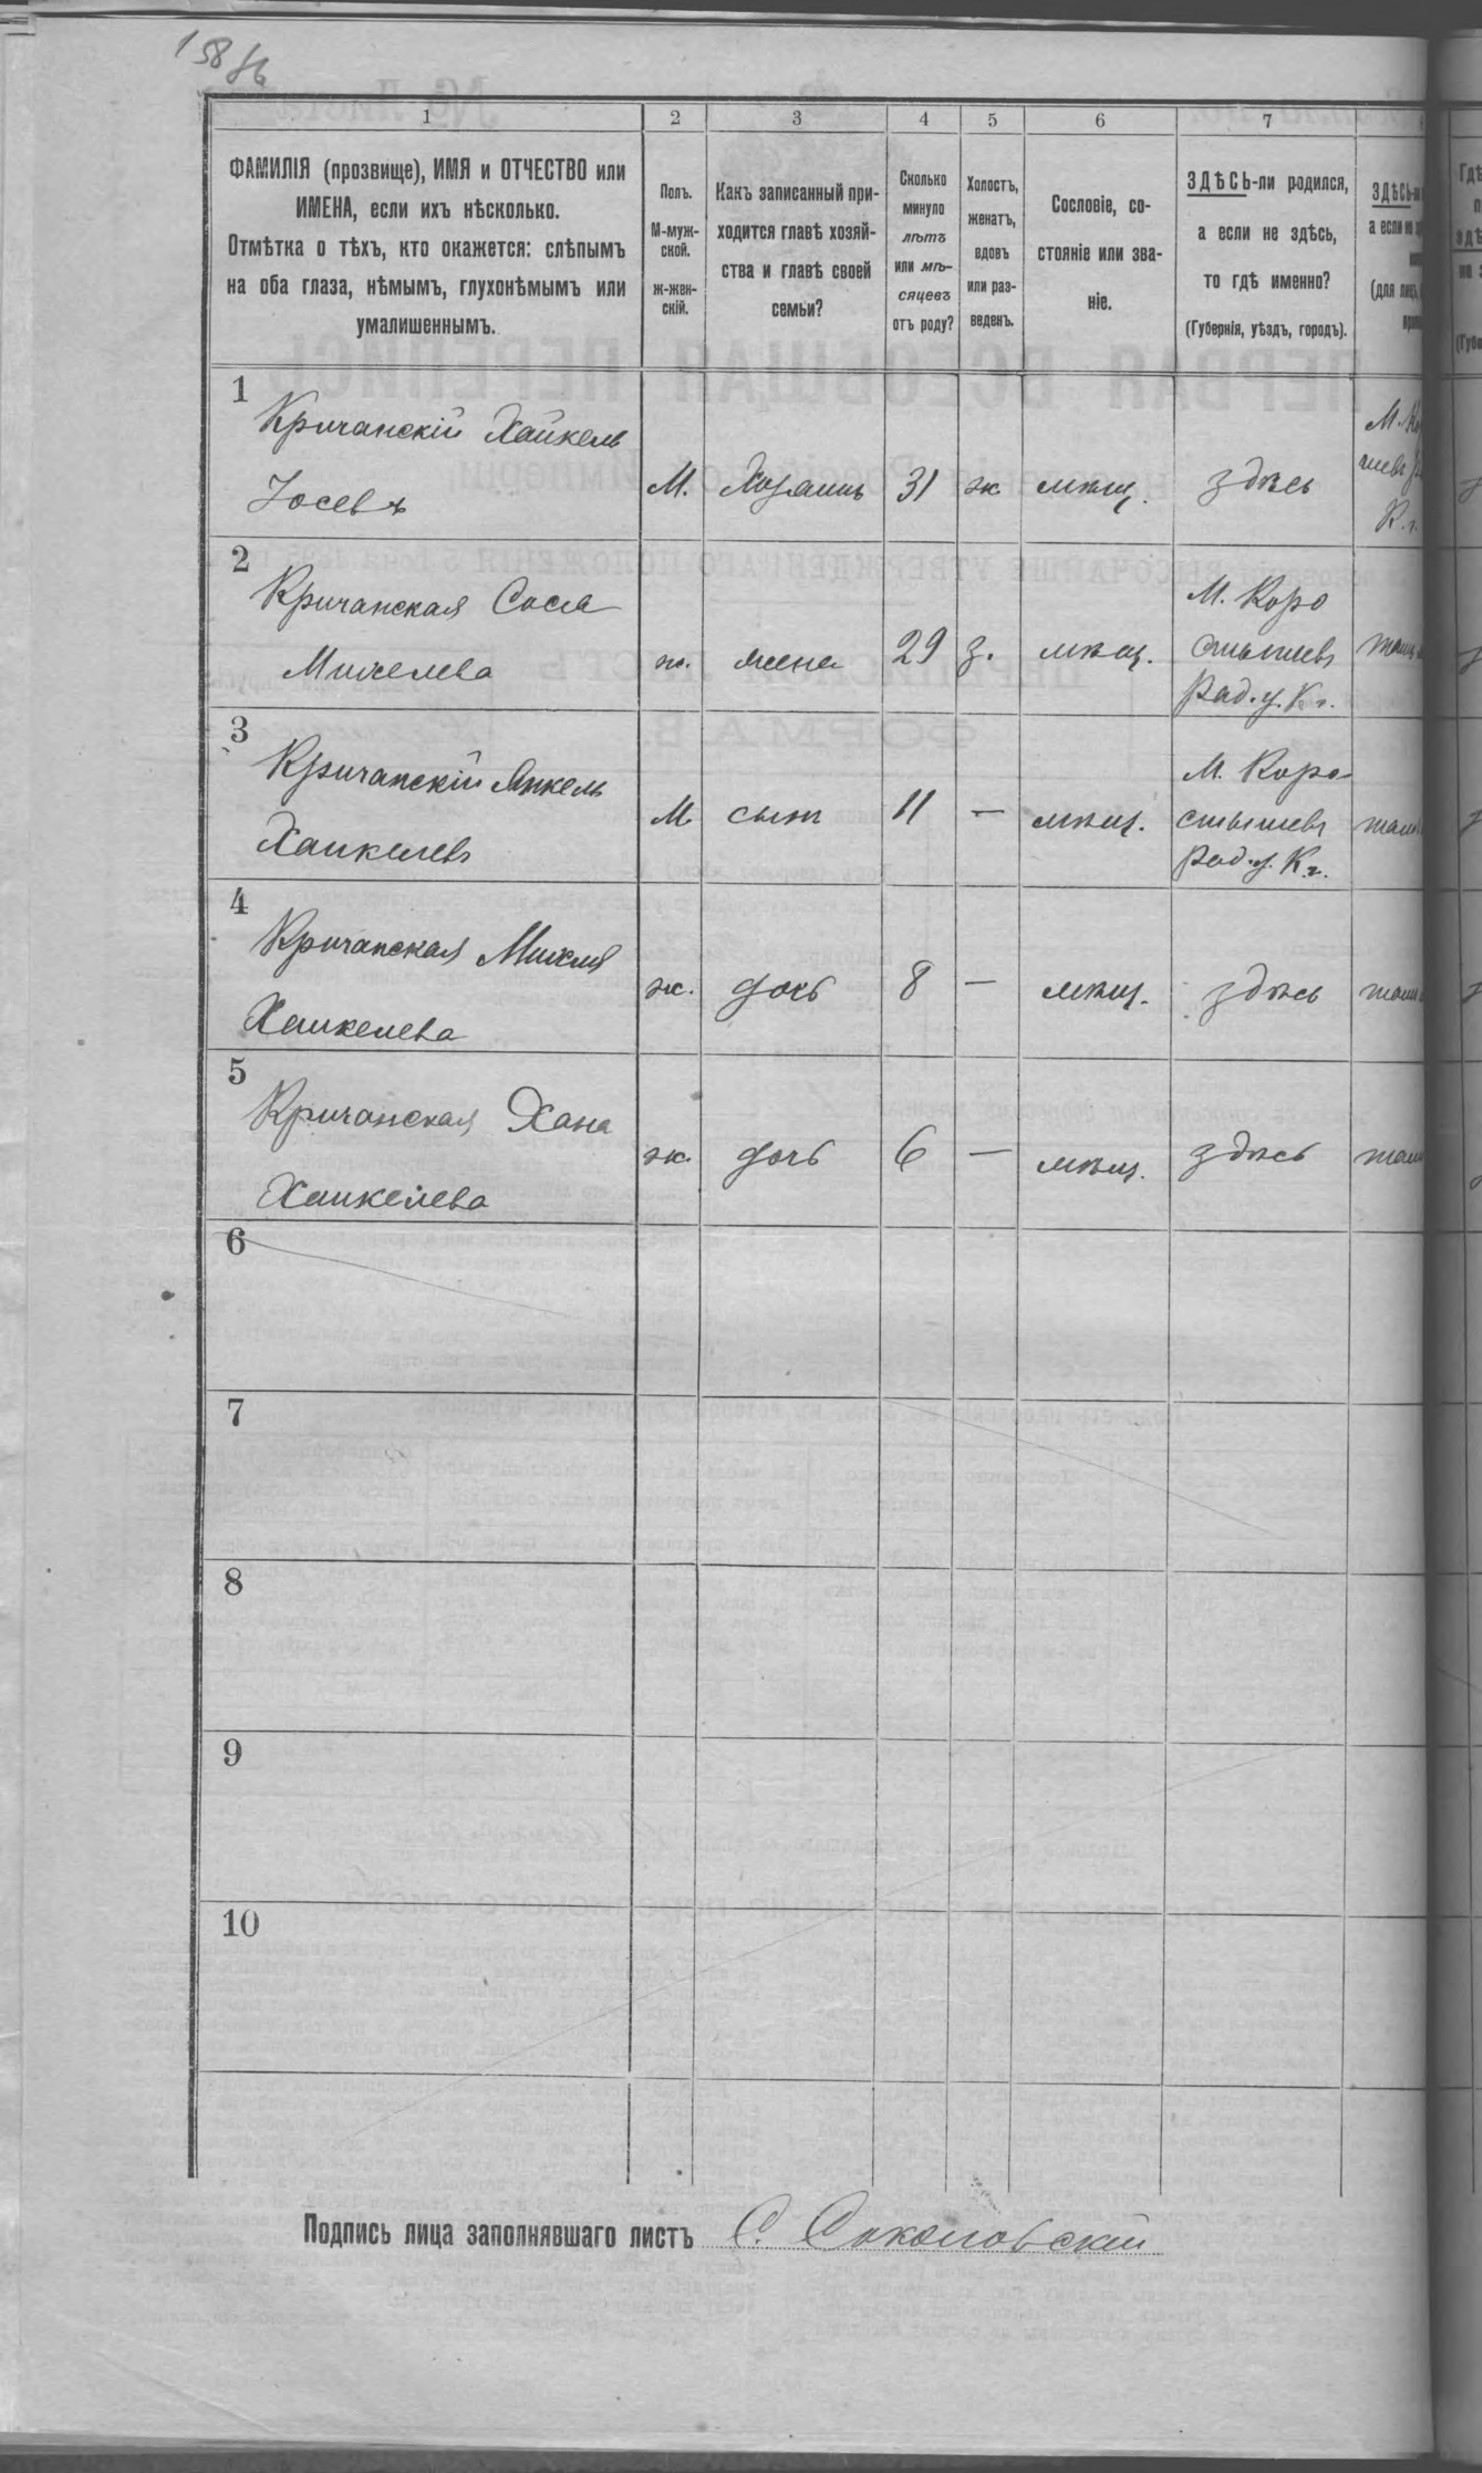 158 об
1 2 3 4 5 6 7
ФАМИЛІЯ (прозвище), ИМЯ и ОТЧЕСТВО или
ИМЕНА, если ихъ нѣсколько.
Отмѣтка о тѣхъ, кто окажется: слѣпымъ
на оба глаза, нѣмымъ, глухонѣмымъ или
умалишеннымъ.
Полъ.
М-муж-
ской.
ж-жен-
скій.
Какъ записанный при-
ходится главѣ хозяй-
ства и главѣ своей
семьи?
Сколько
минуло
лѣтъ
или мѣ-
сяцевъ
отъ роду?
Холостъ,
женатъ,
вдовъ
или раз-
веденъ.
Сословіе, со-
стояніе или зва-
ніе.
ЗДѢСЬ-ли родился,
а если не здѣсь,
то гдѣ именно?
(Губернія, уѣздъ, городъ).
ЗДѢСЬ
а если не
(для лицъ
1
Кричанскій Хайкель
Іосевъ
М. Хозяинъ 31 ж мѣщ. здѣсь
2
Кричанская Сосля
Михелева
ж. жена 29 з. мѣщ.
М. Коро
стышевъ
Рад. у. К г.
3
Кричанскій Янкель
Хаикелевъ
М сынъ 11 — мѣщ.
М. Коро-
стышевъ
Рад. у. К. г.
4
Кричанская
Хаикелева
ж. дочь 8 — мѣщ. здѣсь
5
Кричанская Хана
Хаикелева
ж. дочь 6 — мѣщ. здѣсь
6
7
8
9
10
Подпись лица заполнявшаго листъ С. Соколовскій